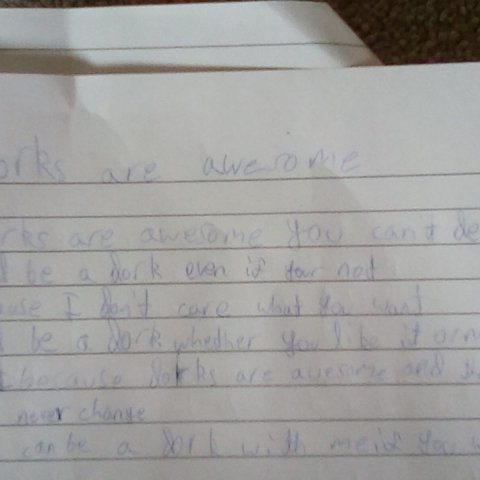 orks are awesome
rks are awesome you can't de
be a dork even if your not
ause I don't care what you want
be a dork whether you like it orno
because dorks are awesome and
never change
can be a dork with me if you w